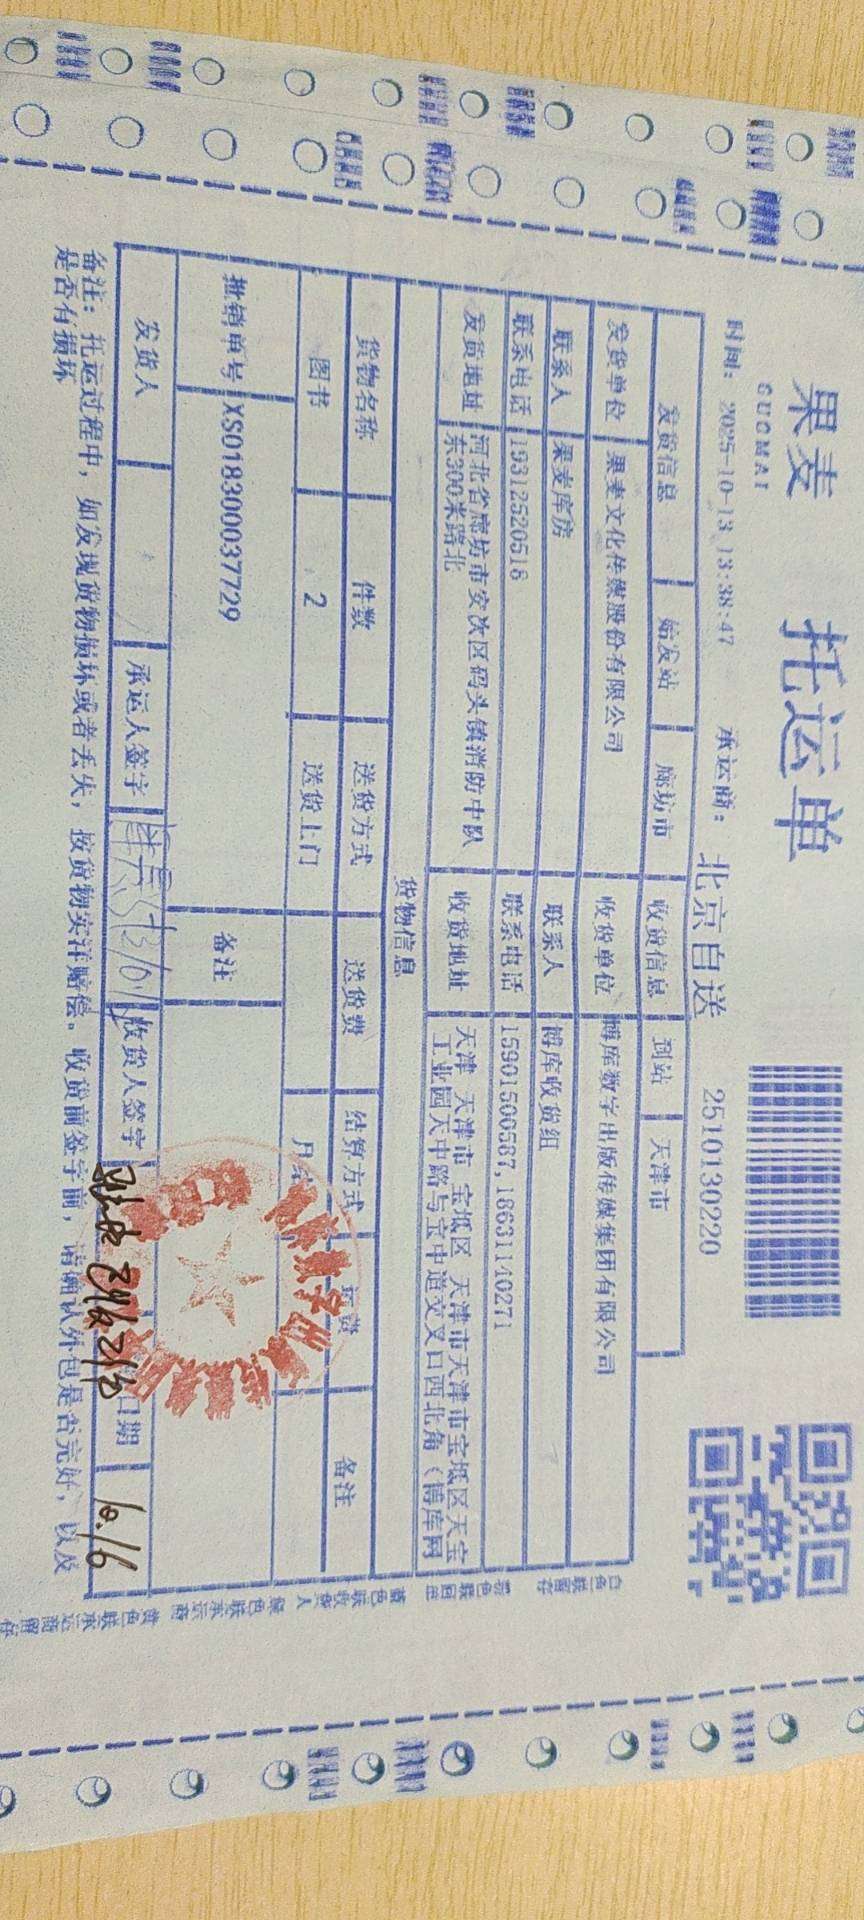 果麦
GUOMAI
托运单
时间: 2025-10-13 13:38:47 承运商: 北京自送 2510130220
发货信息 始发站 廊坊市 收货信息 到站 天津市
发货单位 果麦文化传媒股份有限公司 收货单位 博库数字出版传媒集团有限公司
联系人 果麦库房 联系人 博库收货组
联系电话 19312520516 联系电话 15901500587,18631140271
发货地址 河北省廊坊市安次区码头镇消防中队东300米路北 收货地址 天津 天津市 宝坻区 天津市天津市宝坻区天宝工业园天中路与宝中道交叉口西北角(博库网
货物信息
货物名称 件数 送货方式 送货费 结算方式 备注
图书 2 送货上门 月结
批销单号 XS018300037729 备注
发货人 承运人签字 收货人签字 日期 10.16
备注: 托运过程中, 如发现货物损坏或者丢失, 按货物实洋赔偿。收货前签字前, 请确认外包是否完好, 以及
是否有损坏
白色联留存 彩色联回单 蓝色联收货人 绿色联承运商 黄色联承运商留存